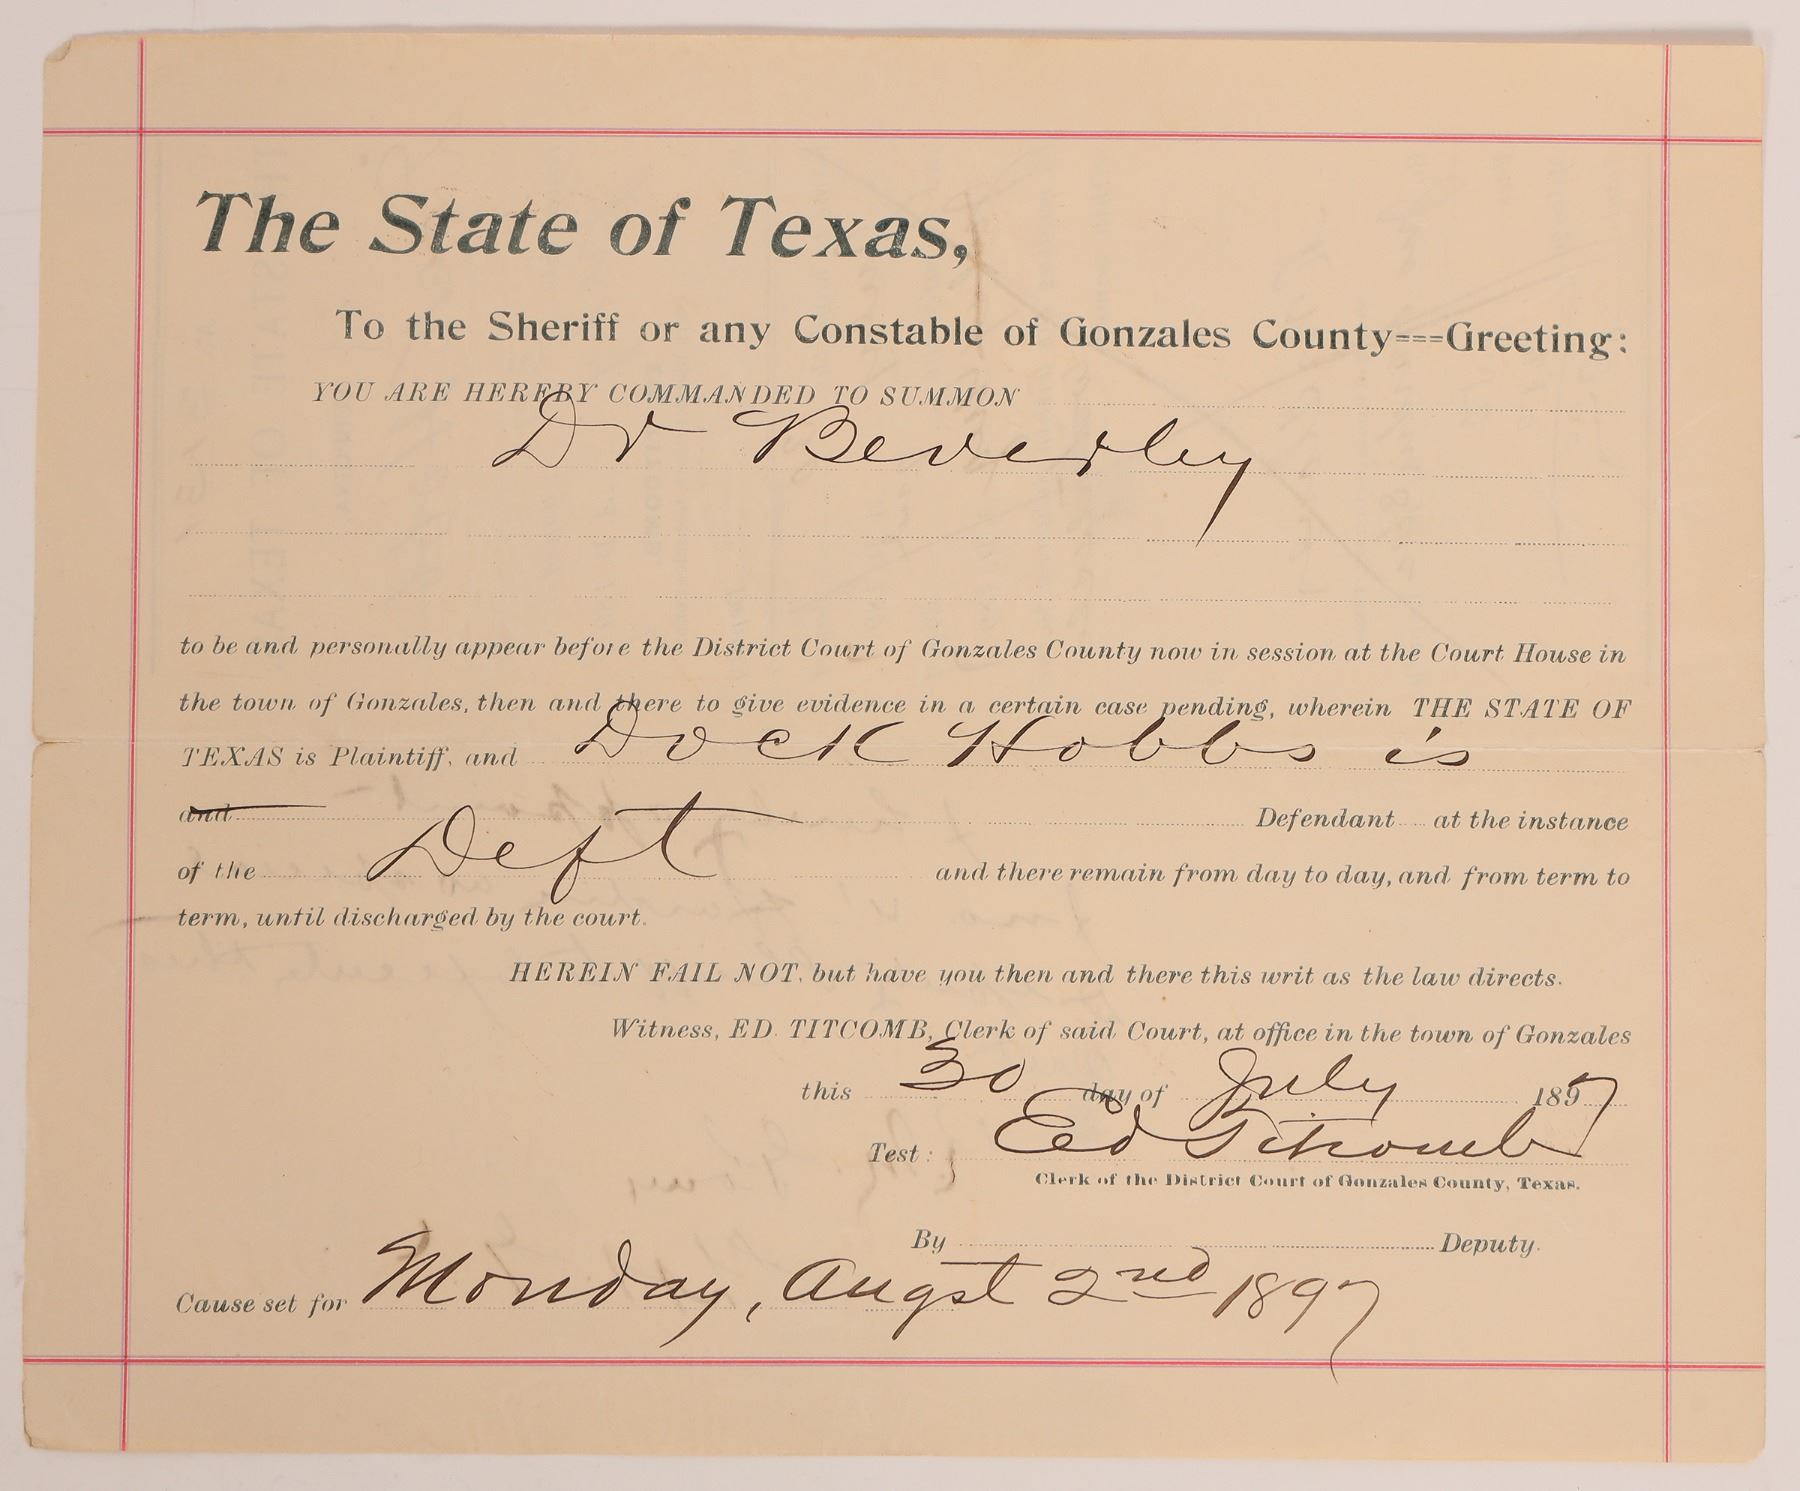 The State of Texas,
To the Sheriff or any Constable of Gonzales County===Greeting:
YOU ARE HEREBY COMMANDED TO SUMMON
Dr Beverley
to be and personally appear before the District Court of Gonzales County now in session at the Court House in
the town of Gonzales, then and there to give evidence in a certain case pending, wherein THE STATE OF
TEXAS is Plaintiff, and Dock Hobbs is
and Defendant at the instance
of the Deft and there remain from day to day, and from term to
term, until discharged by the court.
HEREIN FAIL NOT, but have you then and there this writ as the law directs.
Witness, ED. TITCOMB, Clerk of said Court, at office in the town of Gonzales
this 30 day of July 1897
Test: Ed Titcomb
Clerk of the District Court of Gonzales County, Texas.
By Deputy.
Cause set for Monday, Augst 2nd 1897